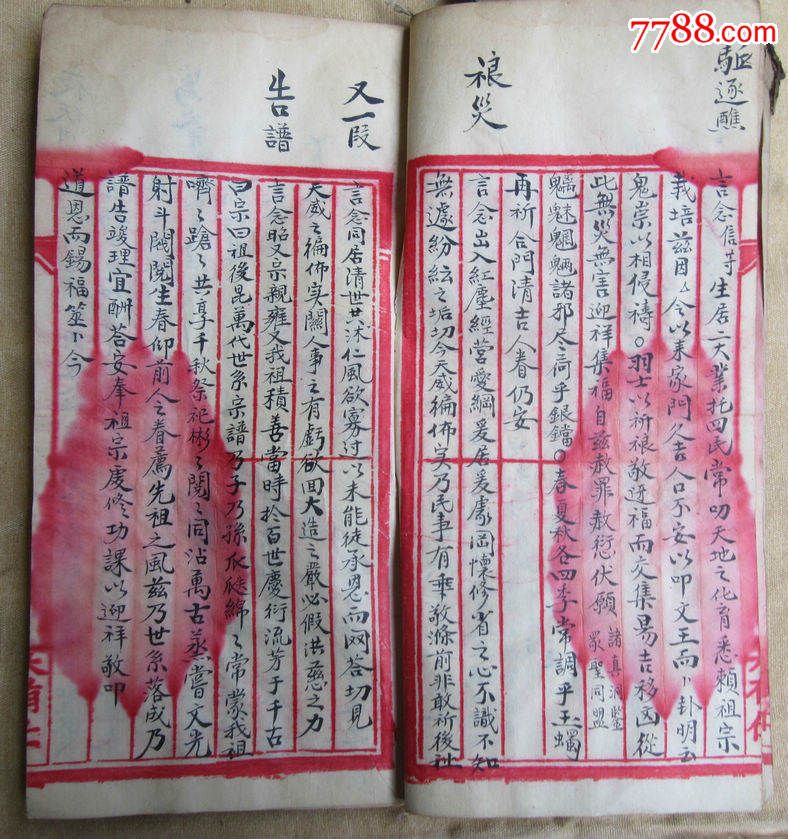 7788.com
驅逐醮
言念信等生居一大業托四民常叨天地之化育悉賴祖宗
栽培茲因
今以來家門久吉人口不安以叩文王而卜卦明
鬼祟以相侵禱○羽士以祈禳敬迓福而交集易吉移凶從
此無災無害迎祥集福自茲赦罪赦愆伏願 諸真洞鑒
眾聖同盟
魑魅魍魎諸邪尽荷乎銀鐺○春夏秋冬四季常調乎玉蠋
再祈合門清吉人眷仍安
禳災
言念出入紅塵經營愛綱爰居爰處罔懷修省之心不識不知
無遽紛紜之垢切今天威徧佈实乃民事有乖敬滌前非敢祈後
又一段
言念同居清世共沐仁風欲寡过以未能徒承恩而网答切見
天威之徧佈实關人事之有虧欲回大造之嚴必假洪慈之力
告譜
言念昭又宗親雍又我祖積善當時於百世慶衍流芳于千古
曰宗曰祖後昆萬代世系宗譜乃子乃孫瓜瓞綿之常蒙我祖
嚌之蹌之共享千秋祭祀彬之閱之同沾萬古蒸嘗文光
射斗閥閱生春仰前人之眷薦先祖之風茲乃世系落成乃
譜告竣理宜酬答安奉祖宗虔修功課以迎祥敬叩
道恩而錫福筮卜今